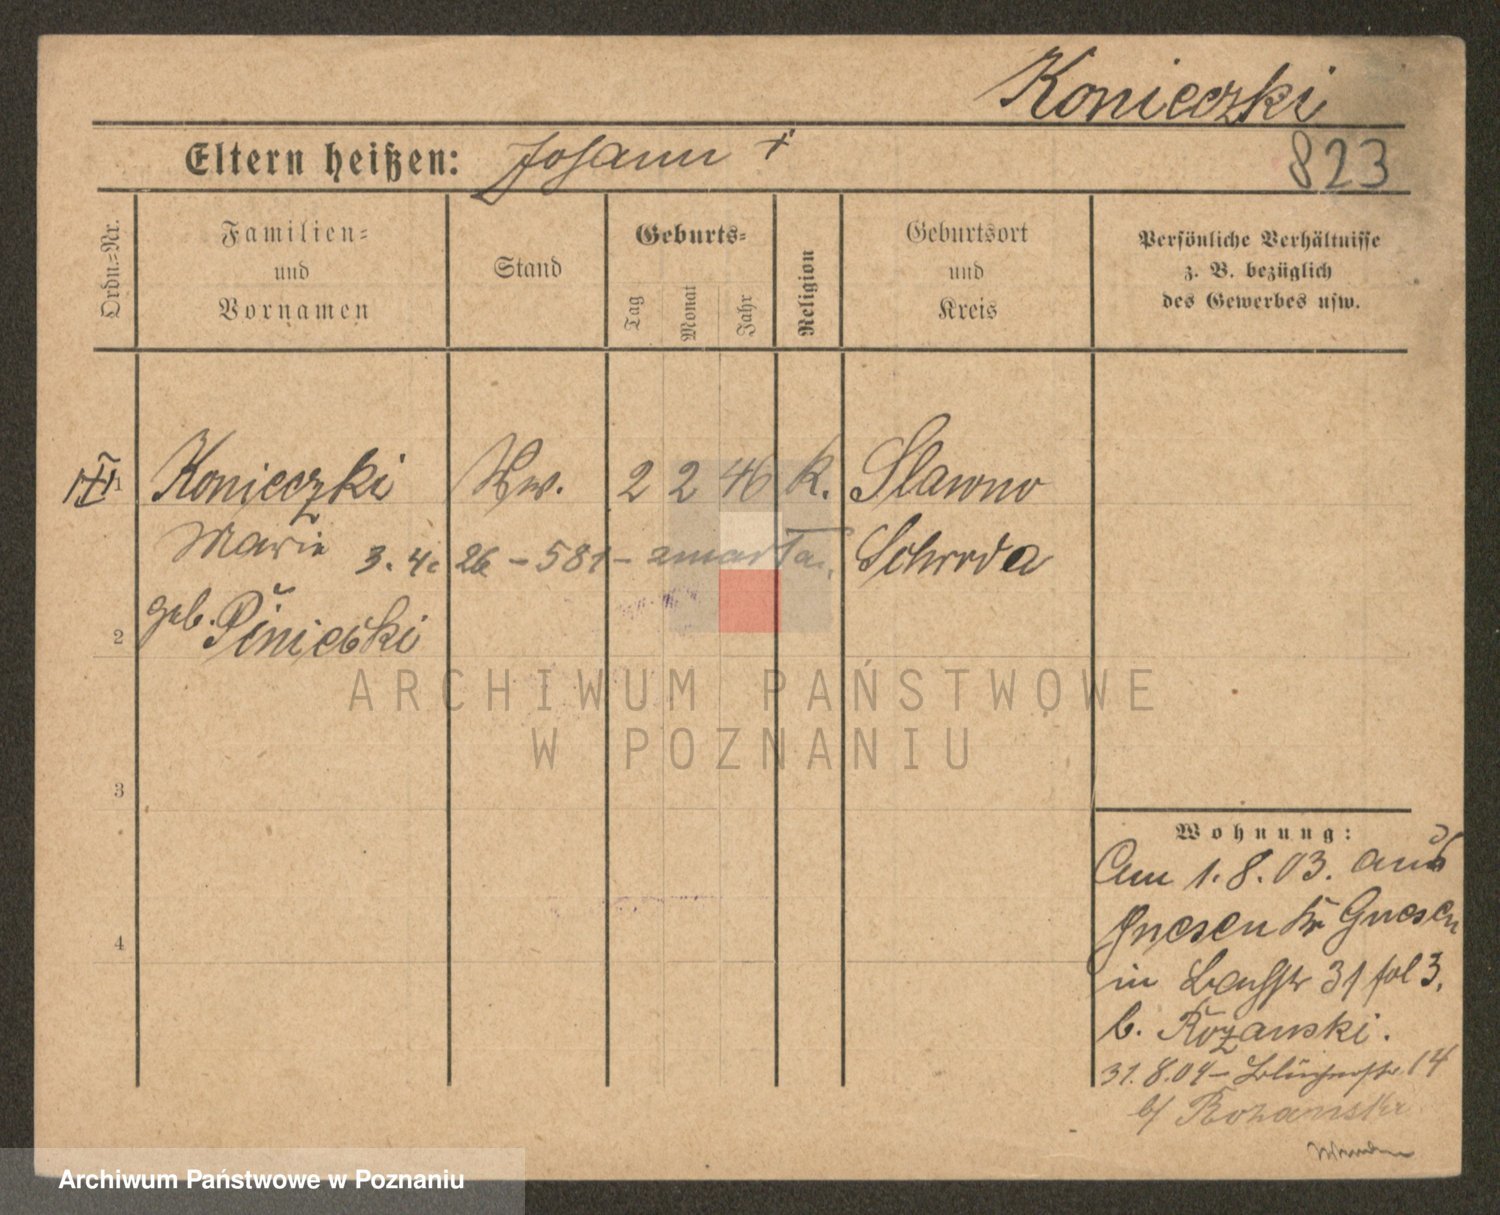 Konieczki
Eltern heißen: Johann +
823
Ordn.=Nr.
Familien=
und
Vornamen
Stand
Geburts=
Tag
Monat
Jahr
Religion
Geburtsort
und
Kreis
Persönliche Verhältnisse
z. B. bezüglich
des Gewerbes usw.
Konieczki Ww. 2 2 46 k. Slawno
Marie 3. 4. 26 - 581 - Schroda
geb.
2
ARCHIWUM PAŃSTWOWE
W POZNANIU
3
4
Wohnung:
Am 1.8.03. aus
Gnesen Kr Gnesen
in Bachstr 31 fol 3.
b. Rozanski.
31.8.04 - Blücherstr. 14
b/ Rozanski
Archiwum Państwowe w Poznaniu